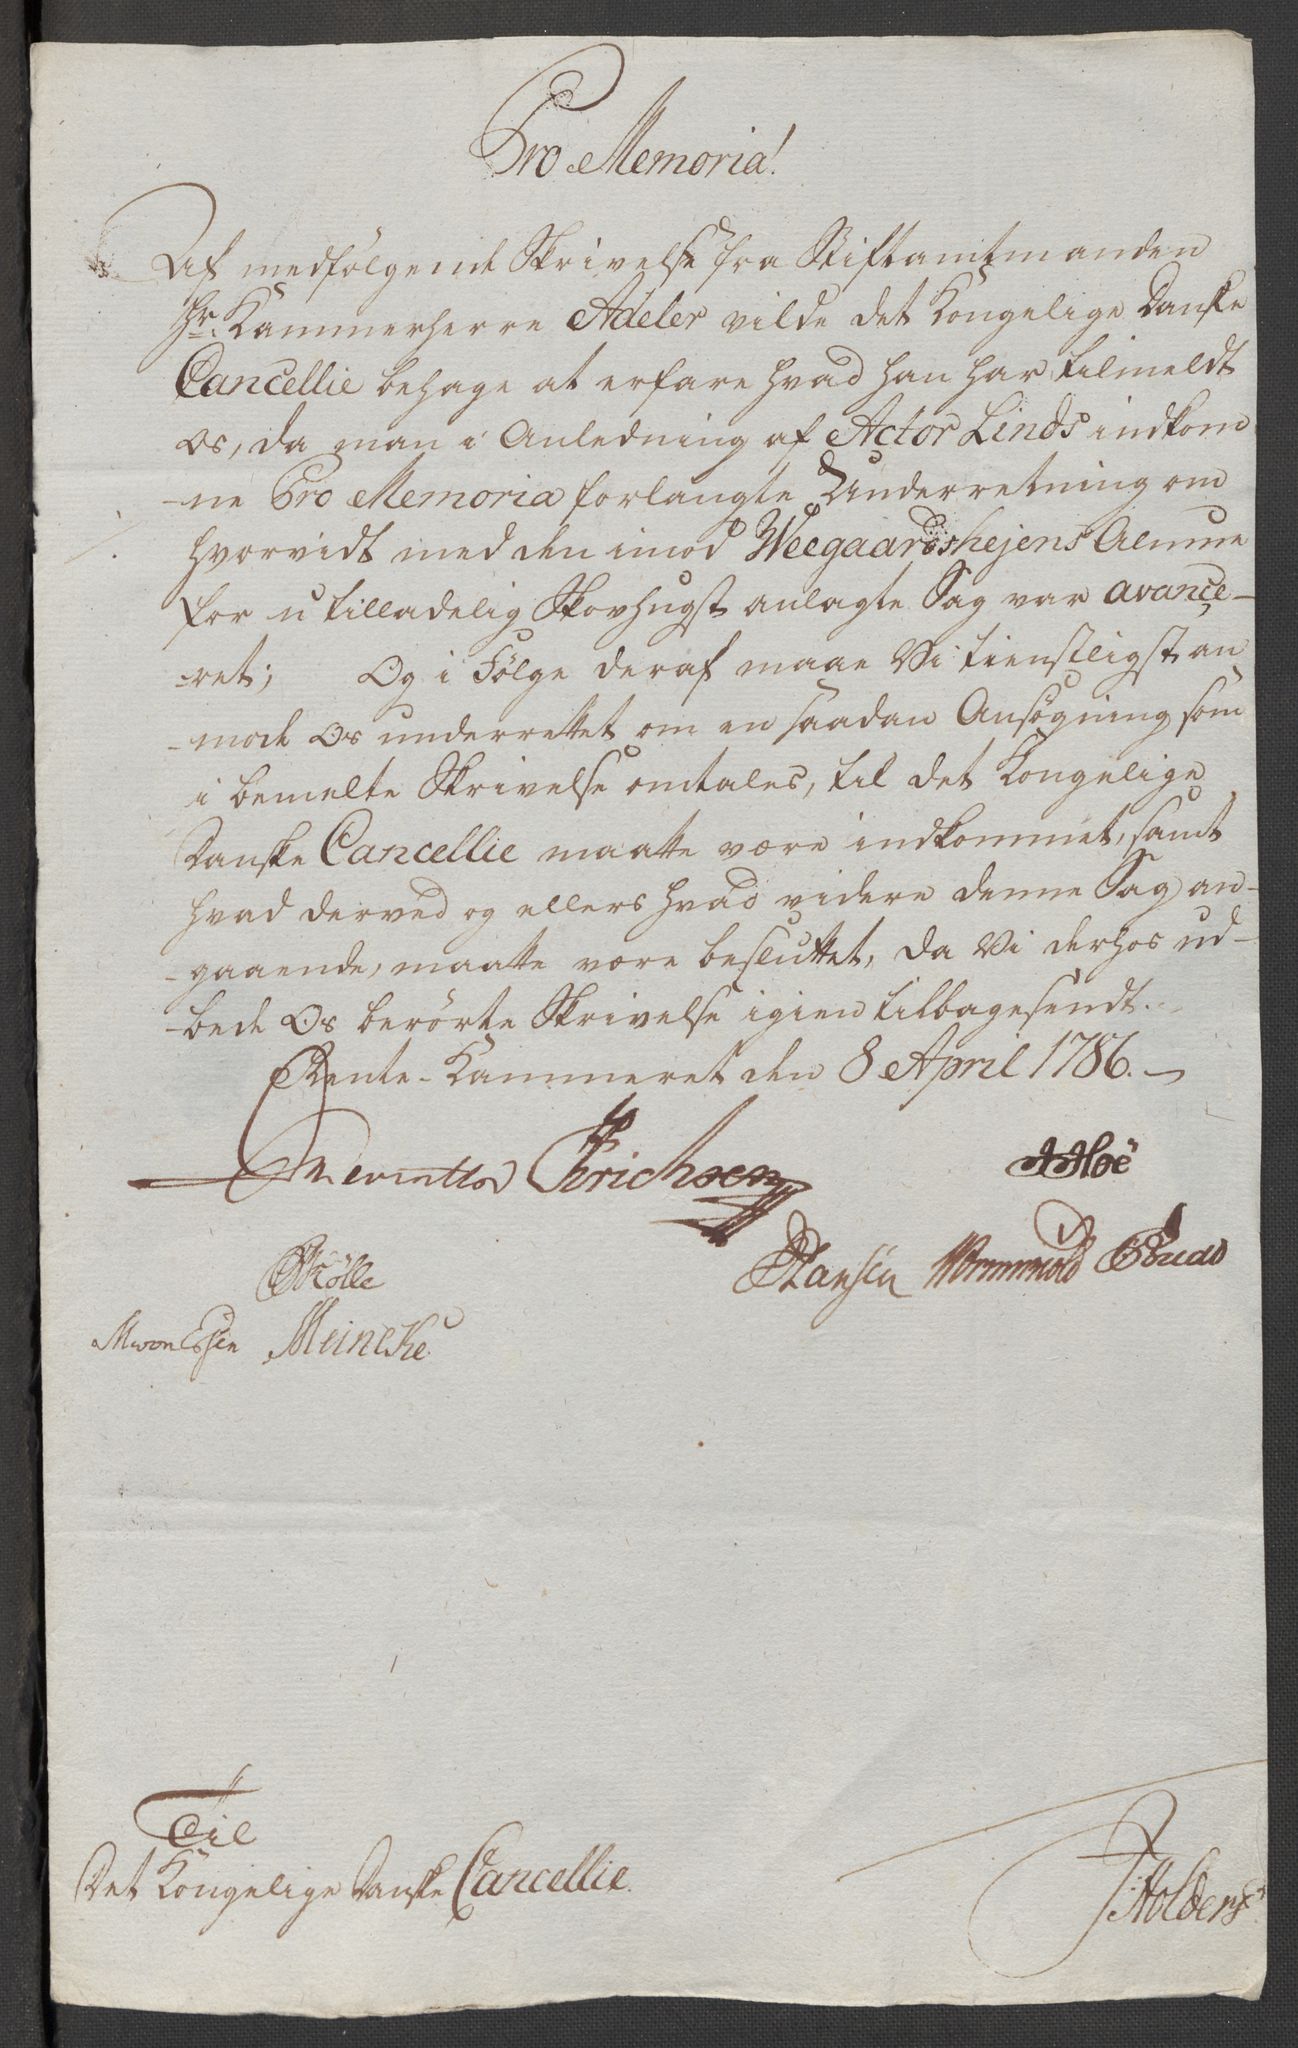 Pro Memoria!
Af medfölgende Skrivelse fra Stiftamtmanden
Hr. Kammerherre Adeler vilde det Kongelige Danske
Cancellie behage at erfare hvad han har tilmeldt
Os, da man i Anledning af Actor Linds indkom
-ne Pro Memoria forlangte Underretning om
hvorvidt med den imod Weegaardshejens Almue
for utilladelig Skovhugst anlagte Sag var avance-
-ret; Og i Fölge deraf maae Vi tienstligst an
-mode Os underrettet om en saadan Ansögning som
i bemelte Skrivelse omtales, til det Kongelige
Danske Cancellie maatte være indkommet, samt
hvad derved og ellers hvad videre denne Sag an-
-gaaende, maatte være besluttet, da Vi derhos ud-
-bede Os berörte Skrivelse igien tilbagesendt.
Rente-Kammeret den 8 April 1786.
Erichsen
Hansen Wormskiold
Mölle
M von Essen Meincke
Til
Det Kongelige Danske Cancellie.
Holders